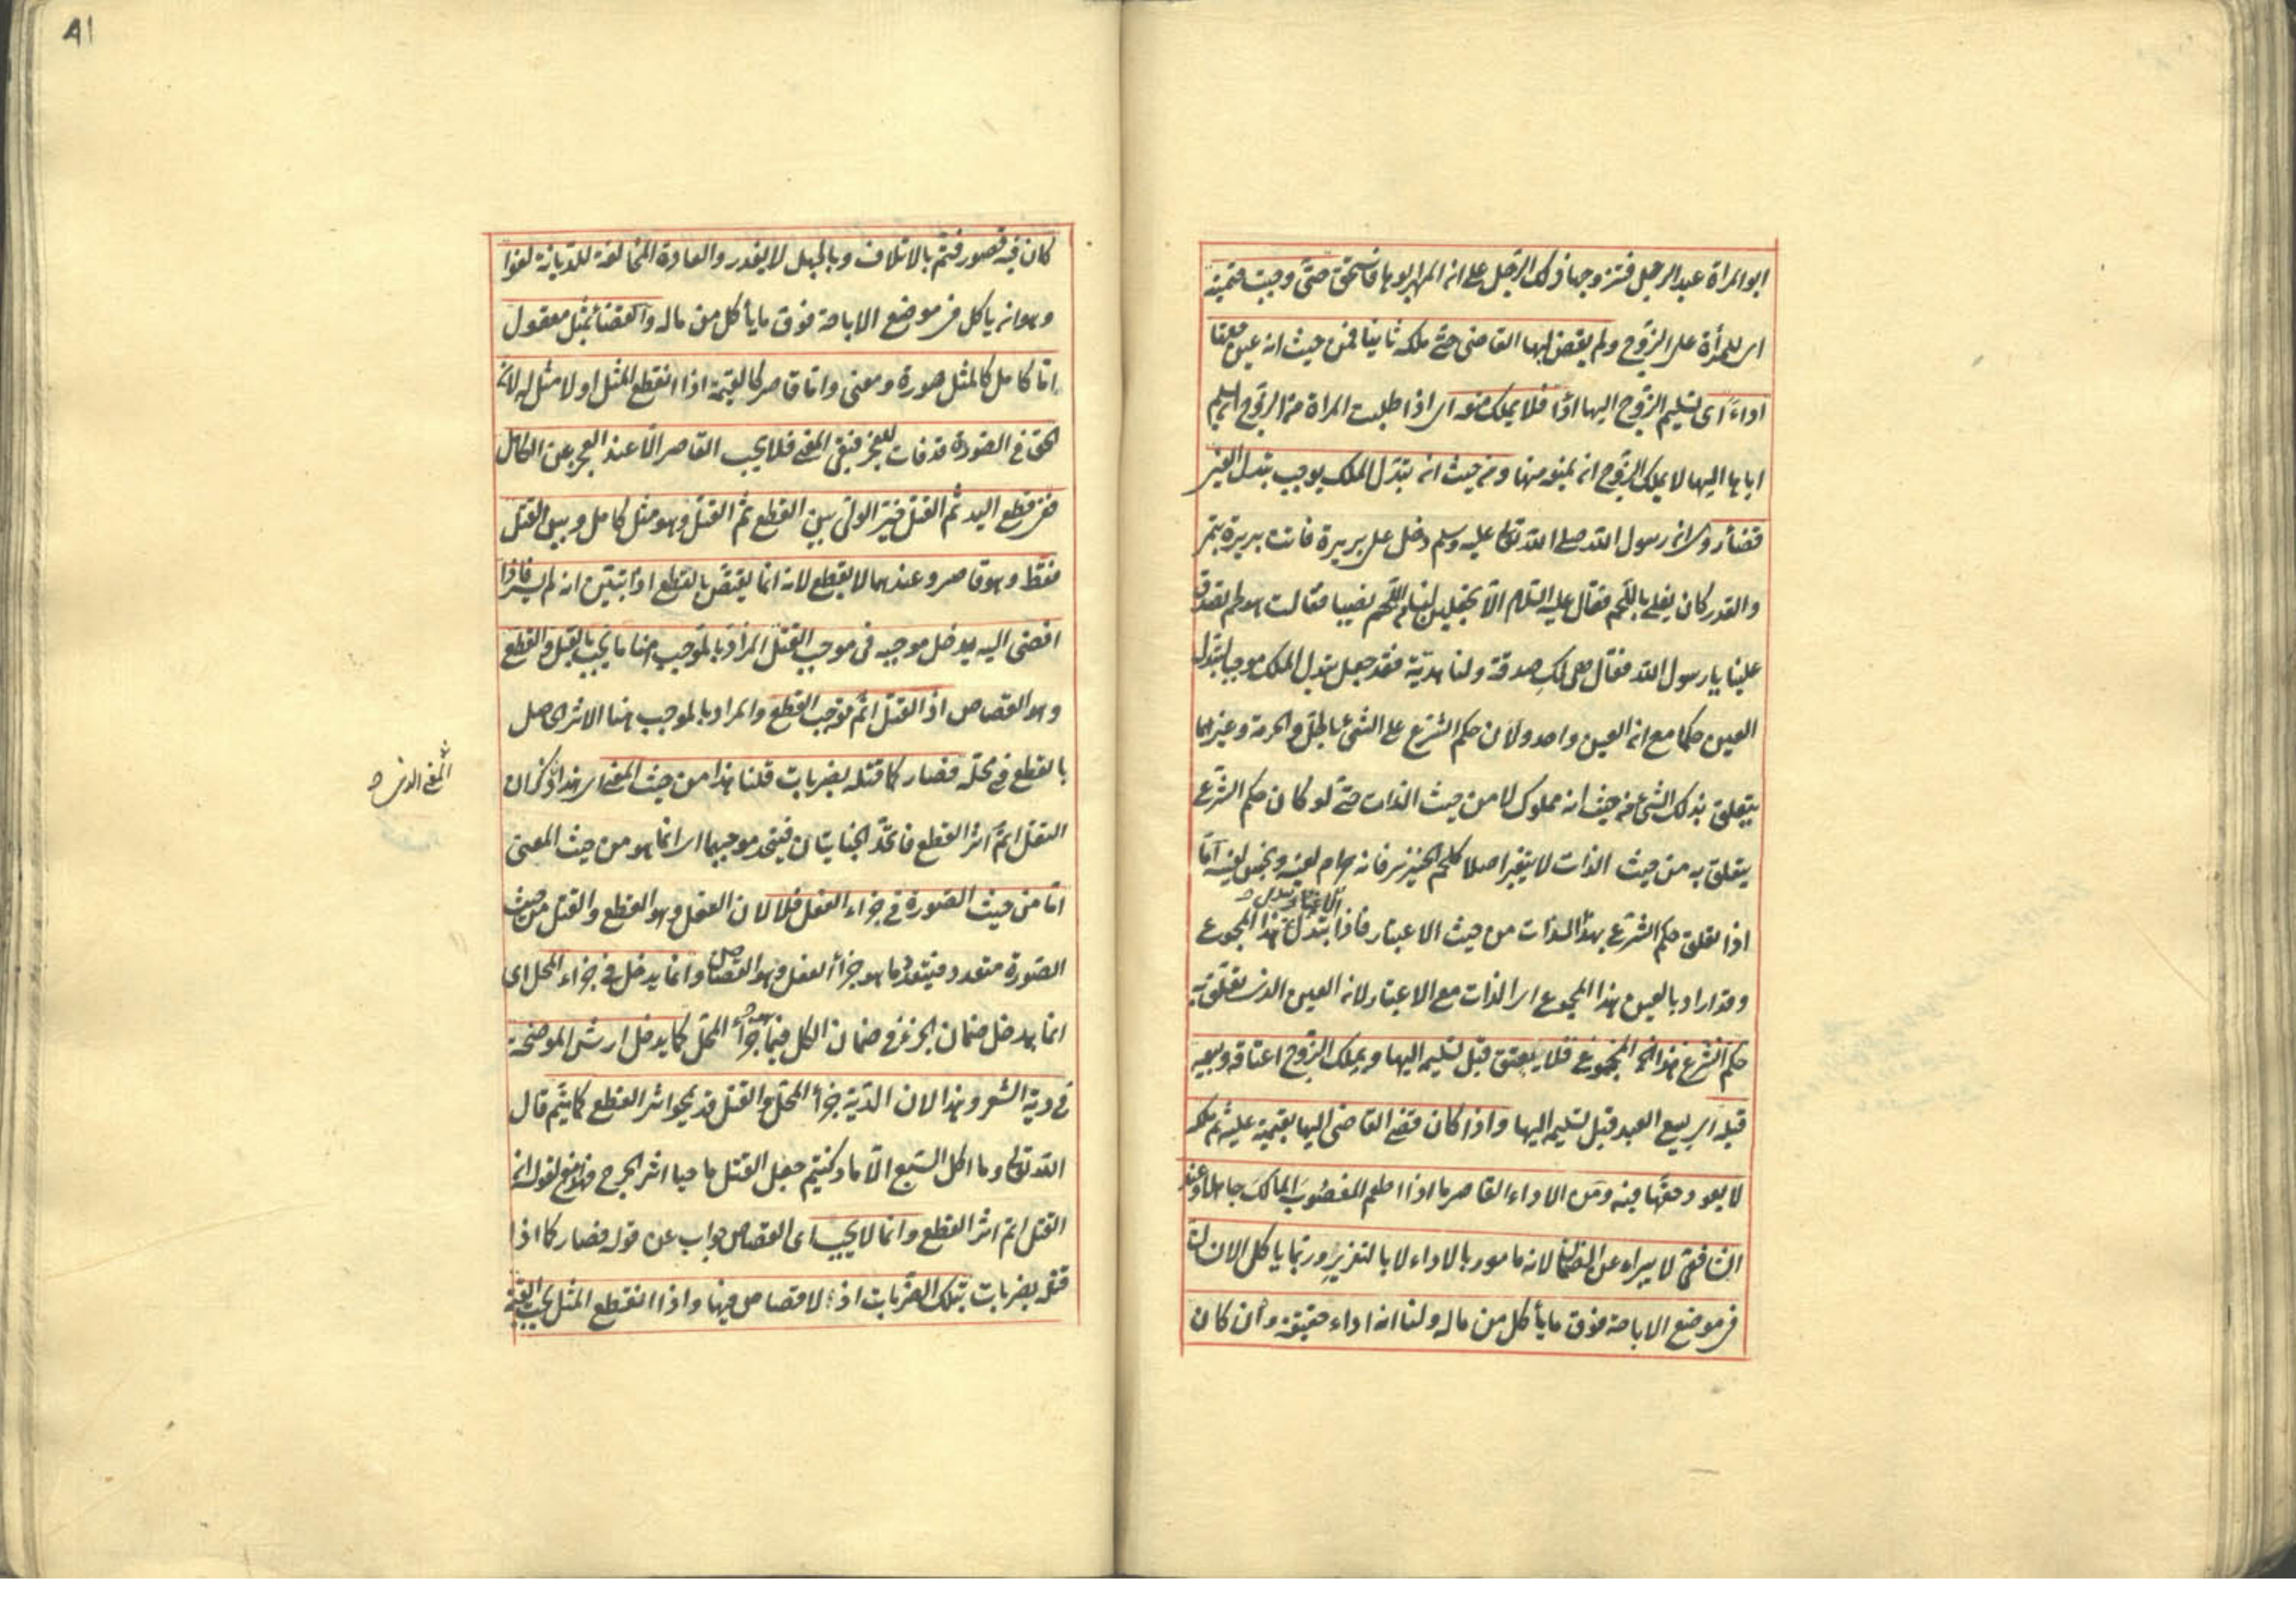 ابو المراة عبد الرجل فتزوجها ذلك الرجل على ان المهر ابوها فاستحق حتى وجبت قيمته
اى للمرأة على الزوج ولم يقض لها القاضى حتى ملكه ثانيا فمن حيث انه عين حقها
اداء اى تسليم الزوج اليها اداء فلا يملك منعه اى اذا طلبت المراة من الزوج ان يسلم
اباها اليها لا يملك الزوج ان يمنعه منها ومن حيث ان تبدل الملك يوجب تبدل العين
قضاء روى ان رسول الله صلى الله تعالى عليه وسلم دخل على بريرة فاتت بريرة بتمر
والقدر كان يغلى باللحم فقال عليه السلام الا تجعلين لنا من اللحم نصيبا فقالت هو لحم تصدق
علينا يا رسول الله فقال هى لك صدقة ولنا هدية فقد جعل تبدل الملك موجبا لتبدل
العين حكما مع ان العين واحد ولان حكم الشرع على الشئ بالحل والحرمة وغيرهما
يتعلق بذلك الشئ من حيث انه مملوك لا من حيث الذات حتى لو كان حكم الشرع
يتعلق به من حيث الذات لا يتغير اصلا كلحم الخنزير فانه حرام لعينه ونجس لعينه اما
اذا تعلق حكم الشرع بهذا الذات من حيث الاعتبار فاذا تبدل هذا المجموع
وقد اراد بالعين هذا المجموع اى الذات مع الاعتبار لان العين الذى تعلق به
حكم الشرع هذا المجموع فلا يعتق قبل تسليمه اليها ويملك الزوج اعتاقه وبيعه
قبله اى بيع العبد قبل تسليمه اليها واذا كان قضى القاضى اليها بقيمته عليه ثم ملكه
لا يعود حقها فيه ومن الاداء القاصر ما اذا اطعم المغصوب المالك جاهلا وعند
الشافعى لا يبراء عن الضمان لانه مامور بالاداء لا بالتغرير وربما ياكل الانسان
فى موضع الاباحة فوق ما يأكل من ماله ولنا انه اداء حقيقة وان كان
٨١
كان فيه قصور فتم بالاتلاف وبالجهل لا يعذر والعادة المخالفة للديانة لغو
وهو انه ياكل فى موضع الاباحة فوق ما يأكل من ماله والقضاء بمثل معقول
اما كامل كالمثل صورة ومعنى واما قاصر كالقيمة اذا انقطع المثل او لا مثل له لان
الحق فى الصورة قد فات للعجز فبقى المعنى فلا يجب القاصر الا عند العجز عن الكامل
ففى قطع اليد ثم القتل خير الولى بين القطع ثم القتل وهو مثل كامل وبين القتل
فقط وهو قاصر وعندهما لا يقطع لانه انما يقتص بالقطع اذا تبين انه لم يسر فاذا
افضى اليه يدخل موجبه فى موجب القتل المراد بالموجب هنا ما يجب بالقتل والقطع
وهو القصاص اذ القتل اتم موجب القطع والمراد بالموجب هنا الاثر الحاصل
بالقطع فى محله فصار كما قتله بضربات قلنا هذا من حيث المعنى اى هذا الذى ذكر ان
القتل اتم اثر القطع فاتحد الجنايتان فيتحد موجبهما انما هو من حيث المعنى
المعنى الذى
اما من حيث الصورة فى جزاء الفعل فلا لان الفعل وهو القطع والقتل من حيث
الصورة متعدد فيتعدد ما هو جزاء الفعل وهو القصاص وانما يدخل فى جزاء المحل اى
انما يدخل ضمان الجزء فى ضمان الكل فيما جزاء المحل كما يدخل ارش الموضحة
فى دية الشعر وهذا لان الدية جزاء المحل والقتل قد يمحو اثر القطع كما يتم قال
الله تعالى وما اكل السبع الا ما ذكيتم جعل القتل ماحيا اثر الجرح فهذا منع لقوله ان
القتل اتم اثر القطع وانما لا يجب اى القصاص جواب عن قوله فصار كما اذا
قتله بضربات بتلك الضربات اذ لا قصاص فيها واذا انقطع المثل يجب القيمة